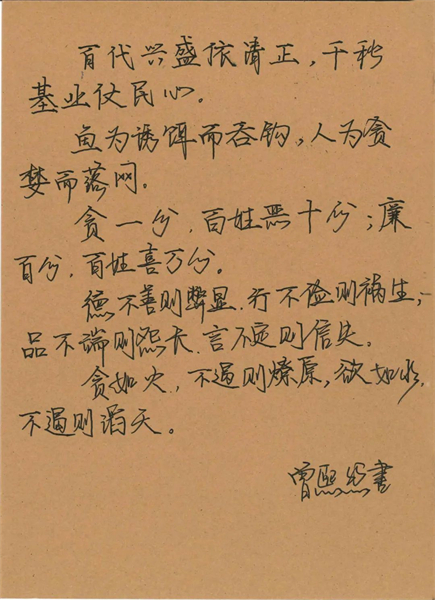 百代兴盛依清正，千秋
基业仗民心。
鱼为诱饵而吞钩，人为贪
婪而落网。
贪一分，百姓恶十分；廉
百分，百姓喜万分。
德不善则弊显，行不俭则祸生，
品不端则怨长，言不定则信失。
贪如火，不遏则燎原，欲如水，
不遏则滔天。
曾熙 书